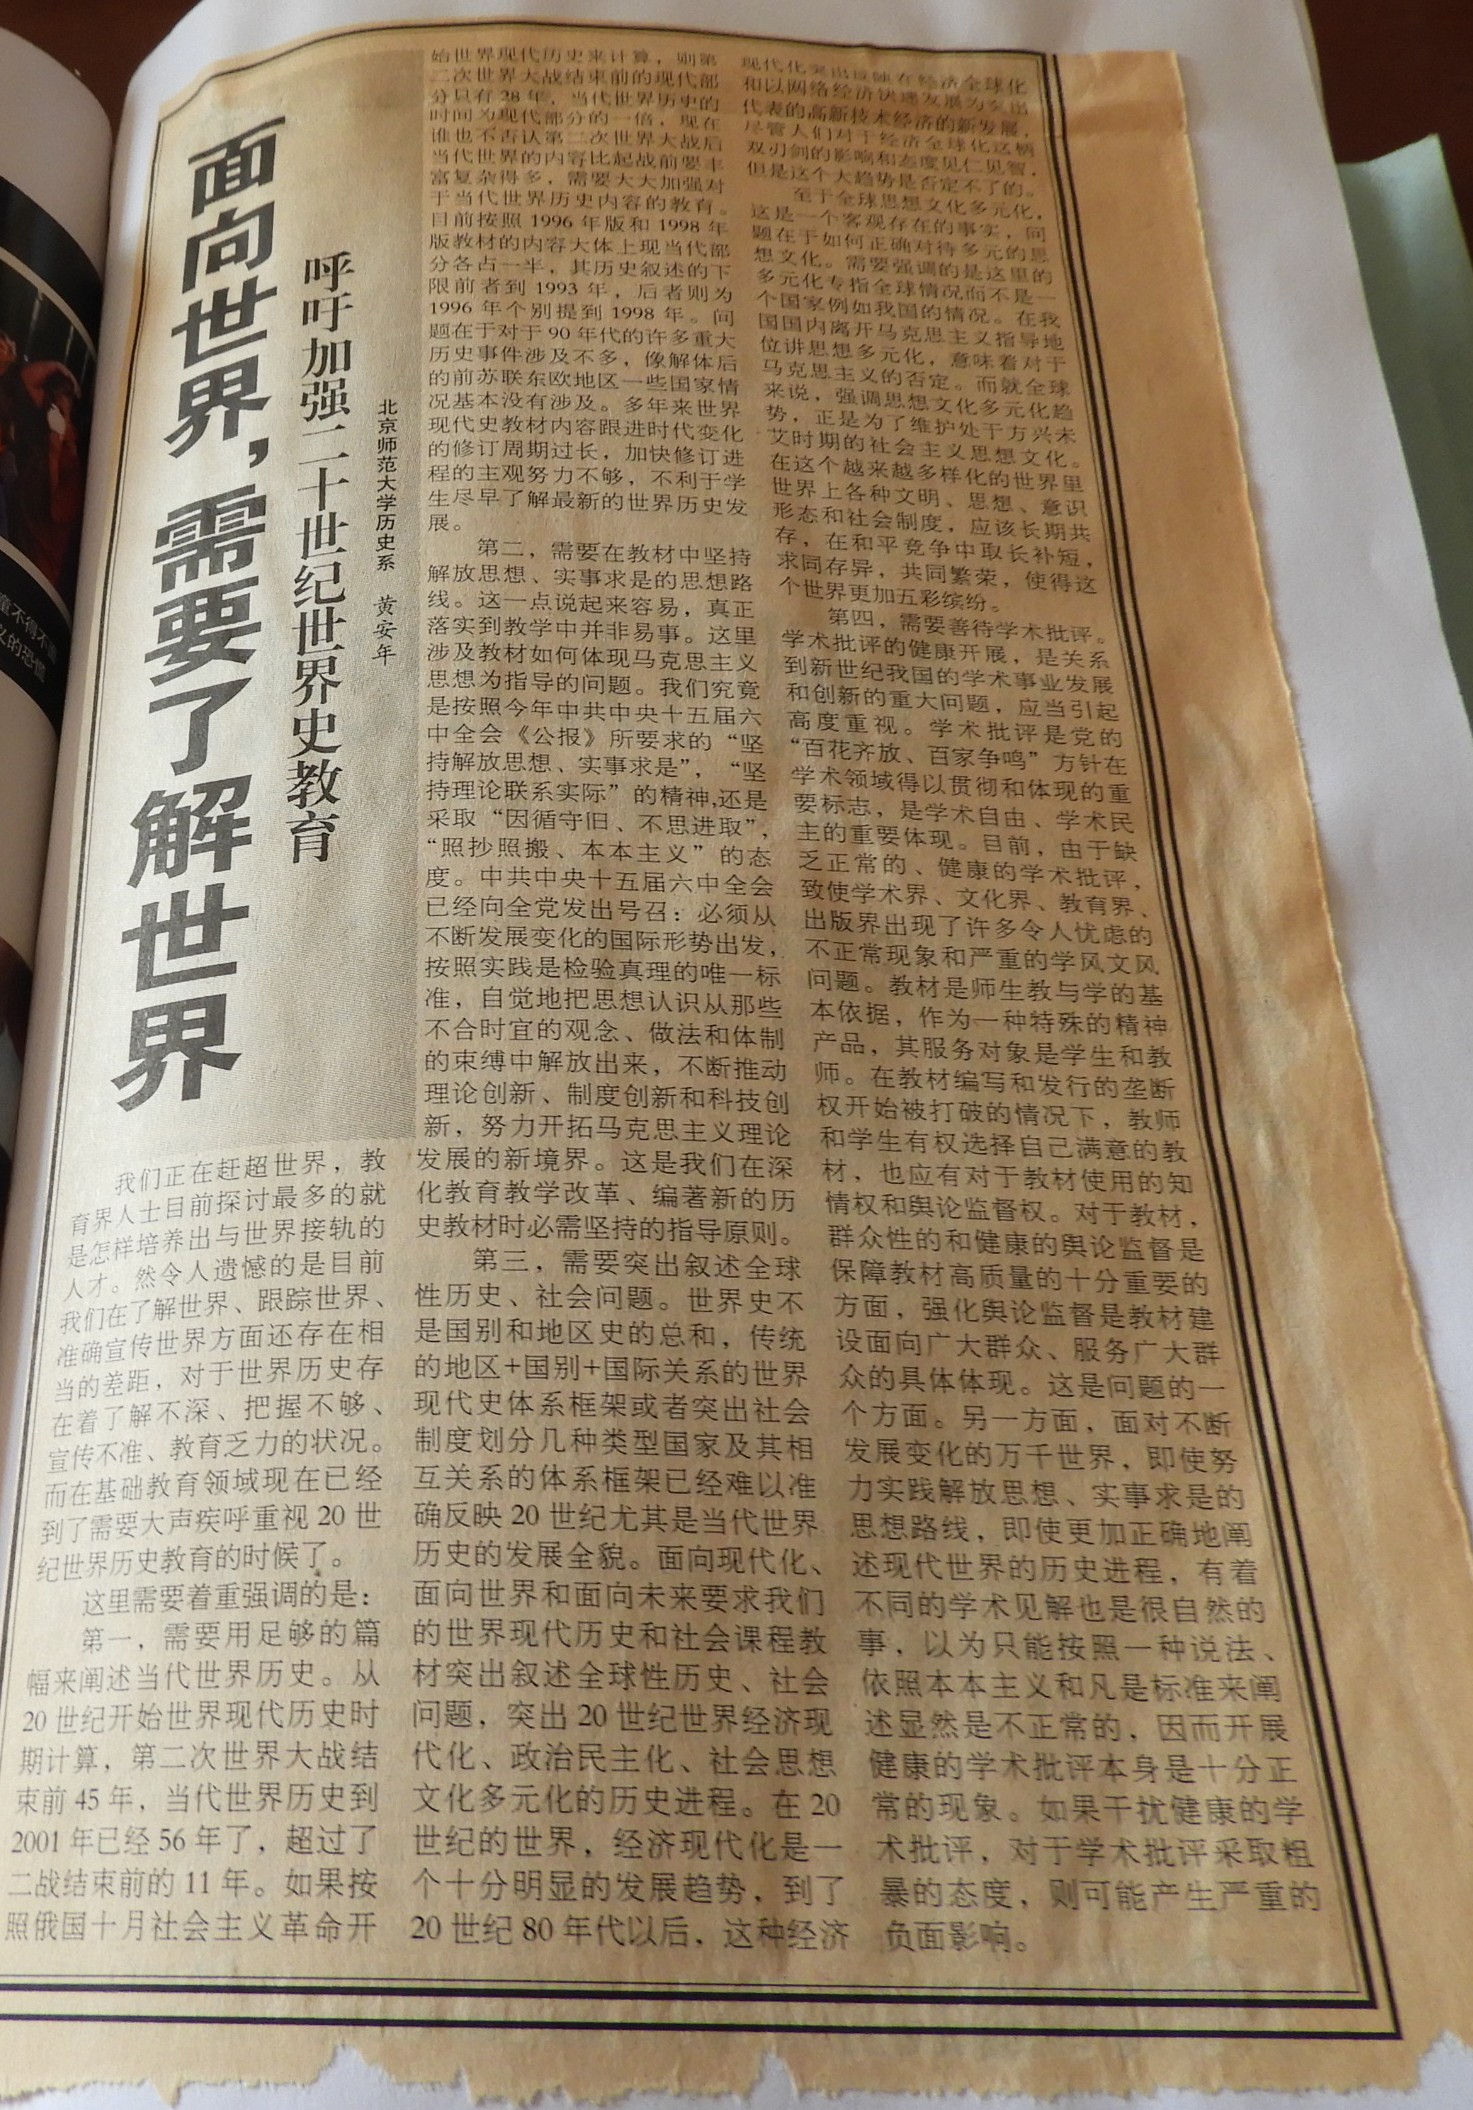 面向世界，需要了解世界
呼吁加强二十世纪世界史教育
北京师范大学历史系 黄安年
我们正在赶超世界，教
育界人士目前探讨最多的就
是怎样培养出与世界接轨的
人才。然令人遗憾的是目前
我们在了解世界、跟踪世界、
准确宣传世界方面还存在相
当的差距，对于世界历史存
在着了解不深、把握不够、
宣传不准、教育乏力的状况。
而在基础教育领域现在已经
到了需要大声疾呼重视 20 世
纪世界历史教育的时候了。
这里需要着重强调的是：
第一，需要用足够的篇
幅来阐述当代世界历史。从
20 世纪开始世界现代历史时
期计算，第二次世界大战结
束前 45 年，当代世界历史到
2001 年已经 56 年了，超过了
二战结束前的 11 年。如果按
照俄国十月社会主义革命开
始世界现代历史来计算，则第
二次世界大战结束前的现代部
分只有 28 年，当代世界历史的
时间为现代部分的一倍，现在
谁也不否认第二次世界大战后
当代世界的内容比起战前要丰
富复杂得多，需要大大加强对
于当代世界历史内容的教育。
目前按照 1996 年版和 1998 年
版教材的内容大体上现当代部
分各占一半，其历史叙述的下
限前者到 1993 年，后者则为
1996 年个别提到 1998 年。问
题在于对于 90 年代的许多重大
历史事件涉及不多，像解体后
的前苏联东欧地区一些国家情
况基本没有涉及。多年来世界
现代史教材内容跟进时代变化
的修订周期过长，加快修订进
程的主观努力不够，不利于学
生尽早了解最新的世界历史发
展。
第二，需要在教材中坚持
解放思想、实事求是的思想路
线。这一点说起来容易，真正
落实到教学中并非易事。这里
涉及教材如何体现马克思主义
思想为指导的问题。我们究竟
是按照今年中共中央十五届六
中全会《公报》所要求的“坚
持解放思想、实事求是”，“坚
持理论联系实际”的精神,还是
采取“因循守旧、不思进取”，
“照抄照搬、本本主义”的态
度。中共中央十五届六中全会
已经向全党发出号召：必须从
不断发展变化的国际形势出发，
按照实践是检验真理的唯一标
准，自觉地把思想认识从那些
不合时宜的观念、做法和体制
的束缚中解放出来，不断推动
理论创新、制度创新和科技创
新，努力开拓马克思主义理论
发展的新境界。这是我们在深
化教育教学改革、编著新的历
史教材时必需坚持的指导原则。
第三，需要突出叙述全球
性历史、社会问题。世界史不
是国别和地区史的总和，传统
的地区+国别+国际关系的世界
现代史体系框架或者突出社会
制度划分几种类型国家及其相
互关系的体系框架已经难以准
确反映 20 世纪尤其是当代世界
历史的发展全貌。面向现代化、
面向世界和面向未来要求我们
的世界现代历史和社会课程教
材突出叙述全球性历史、社会
问题，突出 20 世纪世界经济现
代化、政治民主化、社会思想
文化多元化的历史进程。在 20
世纪的世界，经济现代化是一
个十分明显的发展趋势，到了
20 世纪 80 年代以后，这种经济
现代化突出反映在经济全球化
和以网络经济快速发展为突出
代表的高新技术经济的新发展，
尽管人们对于经济全球化这柄
双刃剑的影响和态度见仁见智，
但是这个大趋势是否定不了的。
至于全球思想文化多元化，
这是一个客观存在的事实，问
题在于如何正确对待多元的思
想文化。需要强调的是这里的
多元化专指全球情况而不是一
个国家例如我国的情况。在我
国国内离开马克思主义指导地
位讲思想多元化，意味着对于
马克思主义的否定。而就全球
来说，强调思想文化多元化趋
势，正是为了维护处于方兴未
艾时期的社会主义思想文化。
在这个越来越多样化的世界里
世界上各种文明、思想、意识
形态和社会制度，应该长期共
存，在和平竞争中取长补短，
求同存异，共同繁荣，使得这
个世界更加五彩缤纷。
第四，需要善待学术批评。
学术批评的健康开展，是关系
到新世纪我国的学术事业发展
和创新的重大问题，应当引起
高度重视。学术批评是党的
“百花齐放、百家争鸣”方针在
学术领域得以贯彻和体现的重
要标志，是学术自由、学术民
主的重要体现。目前，由于缺
乏正常的、健康的学术批评，
致使学术界、文化界、教育界、
出版界出现了许多令人忧虑的
不正常现象和严重的学风文风
问题。教材是师生教与学的基
本依据，作为一种特殊的精神
产品，其服务对象是学生和教
师。在教材编写和发行的垄断
权开始被打破的情况下，教师
和学生有权选择自己满意的教
材，也应有对于教材使用的知
情权和舆论监督权。对于教材，
群众性的和健康的舆论监督是
保障教材高质量的十分重要的
方面，强化舆论监督是教材建
设面向广大群众、服务广大群
众的具体体现。这是问题的一
个方面。另一方面，面对不断
发展变化的万千世界，即使努
力实践解放思想、实事求是的
思想路线，即使更加正确地阐
述现代世界的历史进程，有着
不同的学术见解也是很自然的
事，以为只能按照一种说法、
依照本本主义和凡是标准来阐
述显然是不正常的，因而开展
健康的学术批评本身是十分正
常的现象。如果干扰健康的学
术批评，对于学术批评采取粗
暴的态度，则可能产生严重的
负面影响。